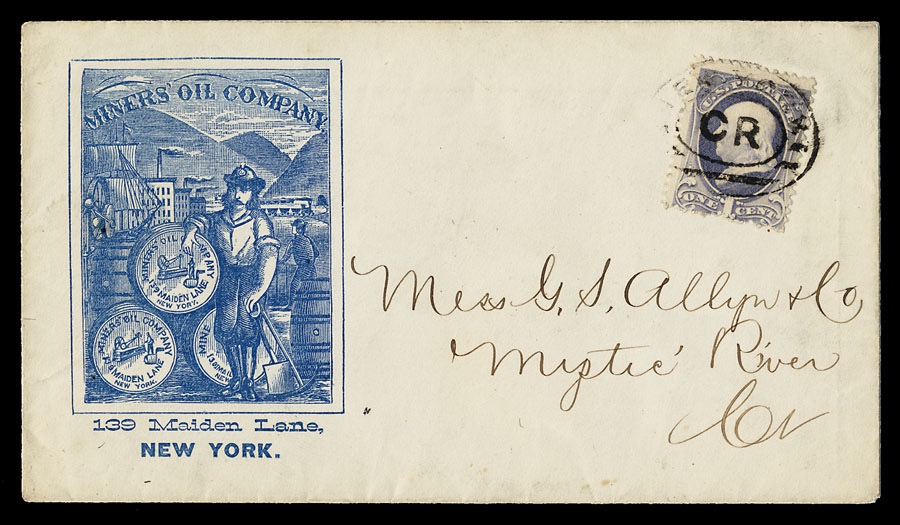 MINERS' OIL COMPANY
MINERS' OIL COMPANY
139 MAIDEN LANE
NEW YORK.
MINERS' OIL COMPANY
139 MAIDEN LANE
NEW YORK.
MINE
139 MAID
NEW
139 Maiden Lane,
NEW YORK.
U.S. POSTAGE
CR
ONE CENT
Mess G. S. Allyn & Co
Mystic River
Ct